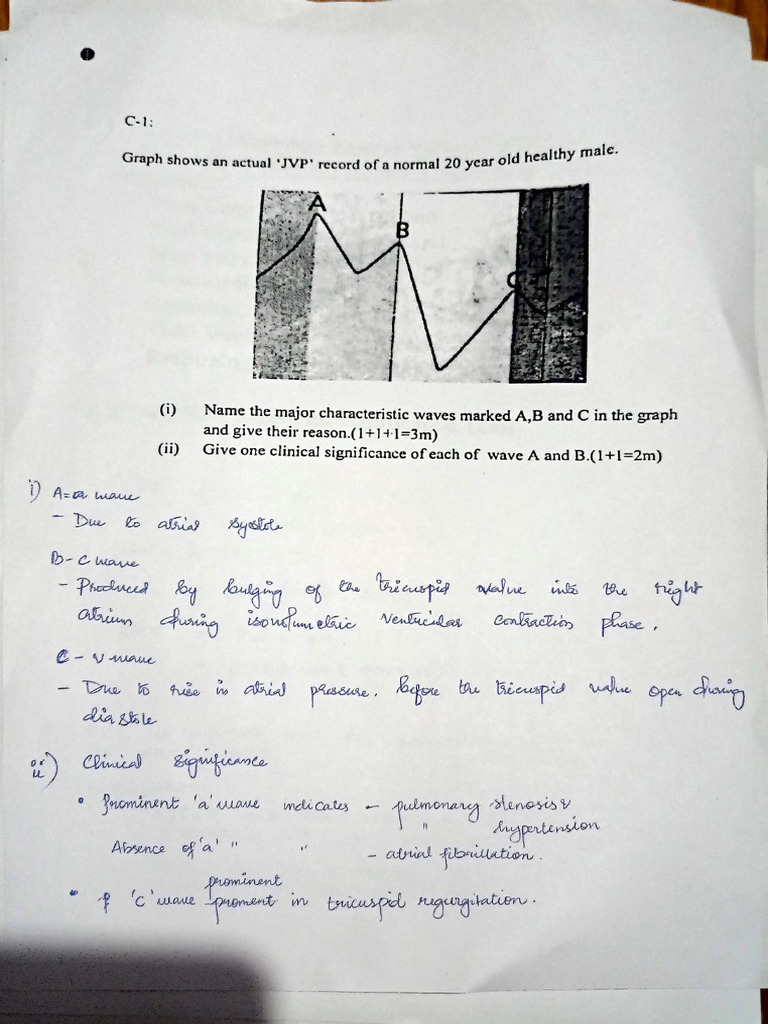 C-1:
Graph shows an actual 'JVP' record of a normal 20 year old healthy male.
A
B
C
(i) Name the major characteristic waves marked A,B and C in the graph
and give their reason.(1+1+1=3m)
(ii) Give one clinical significance of each of wave A and B.(1+1=2m)
i) A= a wave
- Due to atrial systole
B - c wave
- Produced by bulging of the tricuspid valve into the right
atrium during isovolumetric ventricular contraction phase.
C - v wave
- Due to rise in atrial pressure. before the tricuspid valve open during
diastole
ii) Clinical significance
• Prominent 'a' wave indicates - pulmonary stenosis &
" hypertension
Absence of 'a' " " - atrial fibrillation.
prominent
• 'c' wave in tricuspid regurgitation.